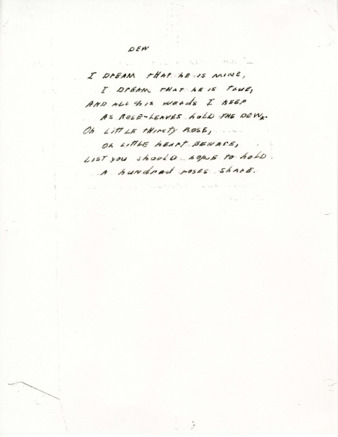 DEW
I DREAM THAT HE IS MINE,
I DREAM THAT HE IS TRUE,
AND ALL HIS WORDS I KEEP
AS ROSE-LEAVES HOLD THE DEW.
OH LITTLE THIRSTY ROSE,
OH LITTLE HEART BEWARE,
LIST YOU SHOULD HOPE TO HOLD
A HUNDRED ROSES SHARE.